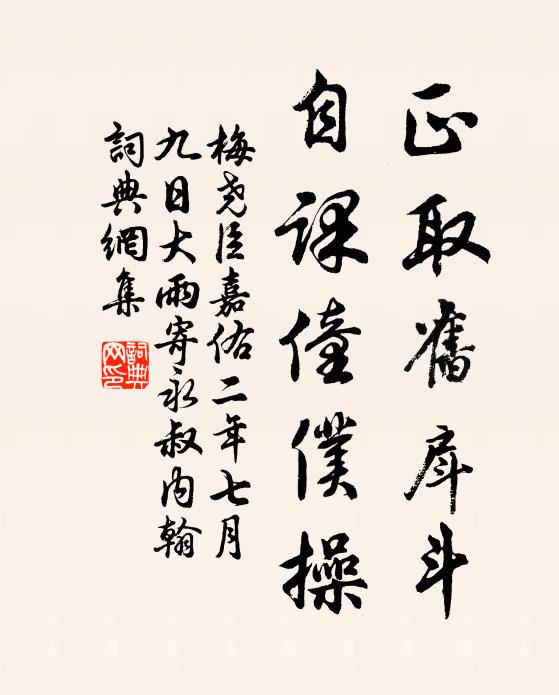 正取舊戽斗
自課僮僕操
梅尧臣嘉佑二年七月
九日大雨寄永叔内翰
詞典網集
詞典网印